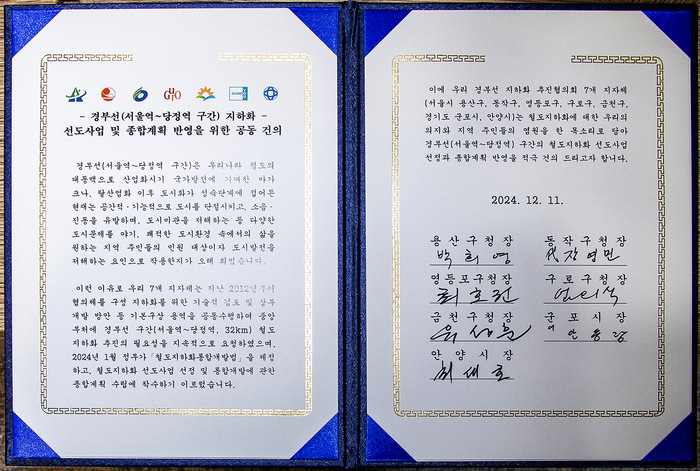 GURO
- 경부선(서울역~당정역 구간) 지하화 -
선도사업 및 종합계획 반영을 위한 공동 건의
경부선(서울역~당정역 구간)은 우리나라 철도의
대동맥으로 산업화시기 국가발전에 기여한 바가
크나, 탈산업화 이후 도시화가 성숙단계에 접어든
현재는 공간적·기능적으로 도시를 단절시키고, 소음·
진동을 유발하며, 도시미관을 저해하는 등 다양한
도시문제를 야기, 쾌적한 도시환경 속에서의 삶을
원하는 지역 주민들의 민원 대상이자 도시발전을
저해하는 요인으로 작용한지가 오래 되었습니다.
이런 이유로 우리 7개 지자체는 지난 2012년부터
협의체를 구성 지하화를 위한 기술적 검토 및 상부
개발 방안 등 기본구상 용역을 공동수행하여 중앙
부처에 경부선 구간(서울역~당정역, 32km) 철도
지하화 추진의 필요성을 지속적으로 요청하였으며,
2024년 1월 정부가 「철도지하화통합개발법」을 제정
하고, 철도지하화 선도사업 선정 및 통합개발에 관한
종합계획 수립에 착수하기 이르렀습니다.
이에 우리 경부선 지하화 추진협의회 7개 지자체
(서울시 용산구, 동작구, 영등포구, 구로구, 금천구,
경기도 군포시, 안양시)는 철도지하화에 대한 우리의
의지와 지역 주민들의 염원을 한 목소리로 담아
경부선(서울역~당정역) 구간의 철도지하화 선도사업
선정과 종합계획 반영을 적극 건의 드리고자 합니다.
2024. 12. 11.
용산구청장 동작구청장
박희영 代
영등포구청장 구로구청장
최호권
금천구청장 군포시장
안양시장
최대호